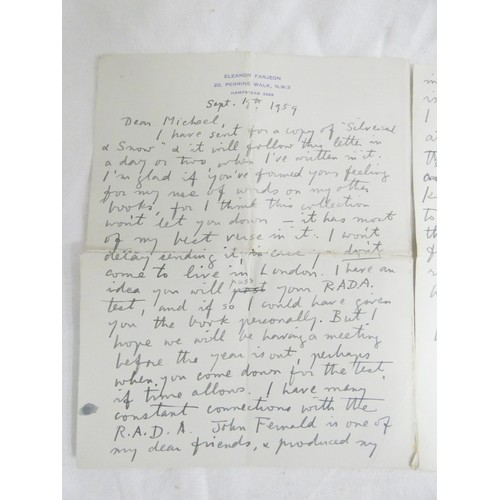 ELEANOR FARJEON
20, PERRINS WALK, N.W.3
HAMPSTEAD
Sept. 1959
Dear Michael,
I have sent for a copy of "Silversand
& Snow" & it will follow this letter in
a day or two, when I've written in it.
I'm glad if you've formed your feeling
for my use of words on my other
books, for I think this collection
won't let you down — it has most
of my best verse in it. I won't
delay sending it, in case you don't
come to live in London. I have an
idea you will pass your R.A.D.A.
test, and if so I could have given
you the book personally. But I
hope we will be having a meeting
before the year is out, perhaps
when you come down for the test,
if time allows. I have many
constant connections with the
R.A.D.A. John Fernald is one of
my dear friends, & produced my